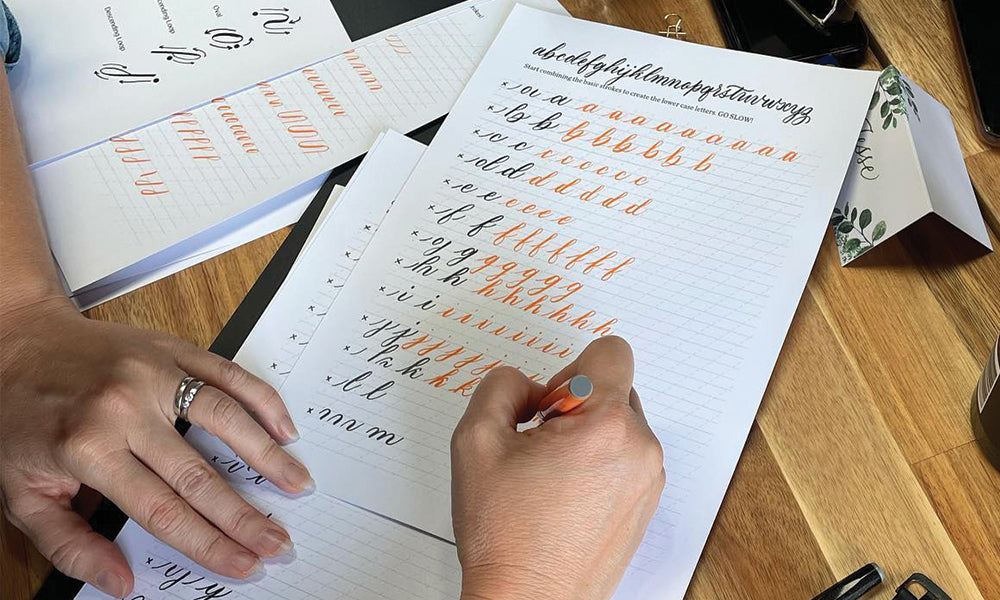 Oval
Loop
Descending Loop
abcdefghijklmnopqrstuvwxyz
Start combining the basic strokes to create the lower case letters. GO SLOW!
a a a a a a a a a a a
b b b b b b b b
c c c c c c c c
d d d d d d d d
e e e e e e
f f f f f f f f f
g g g g g g g g
h h h h h h h h h
i i i i i i i i i
j j j j j j j
k k k k
l l
m m